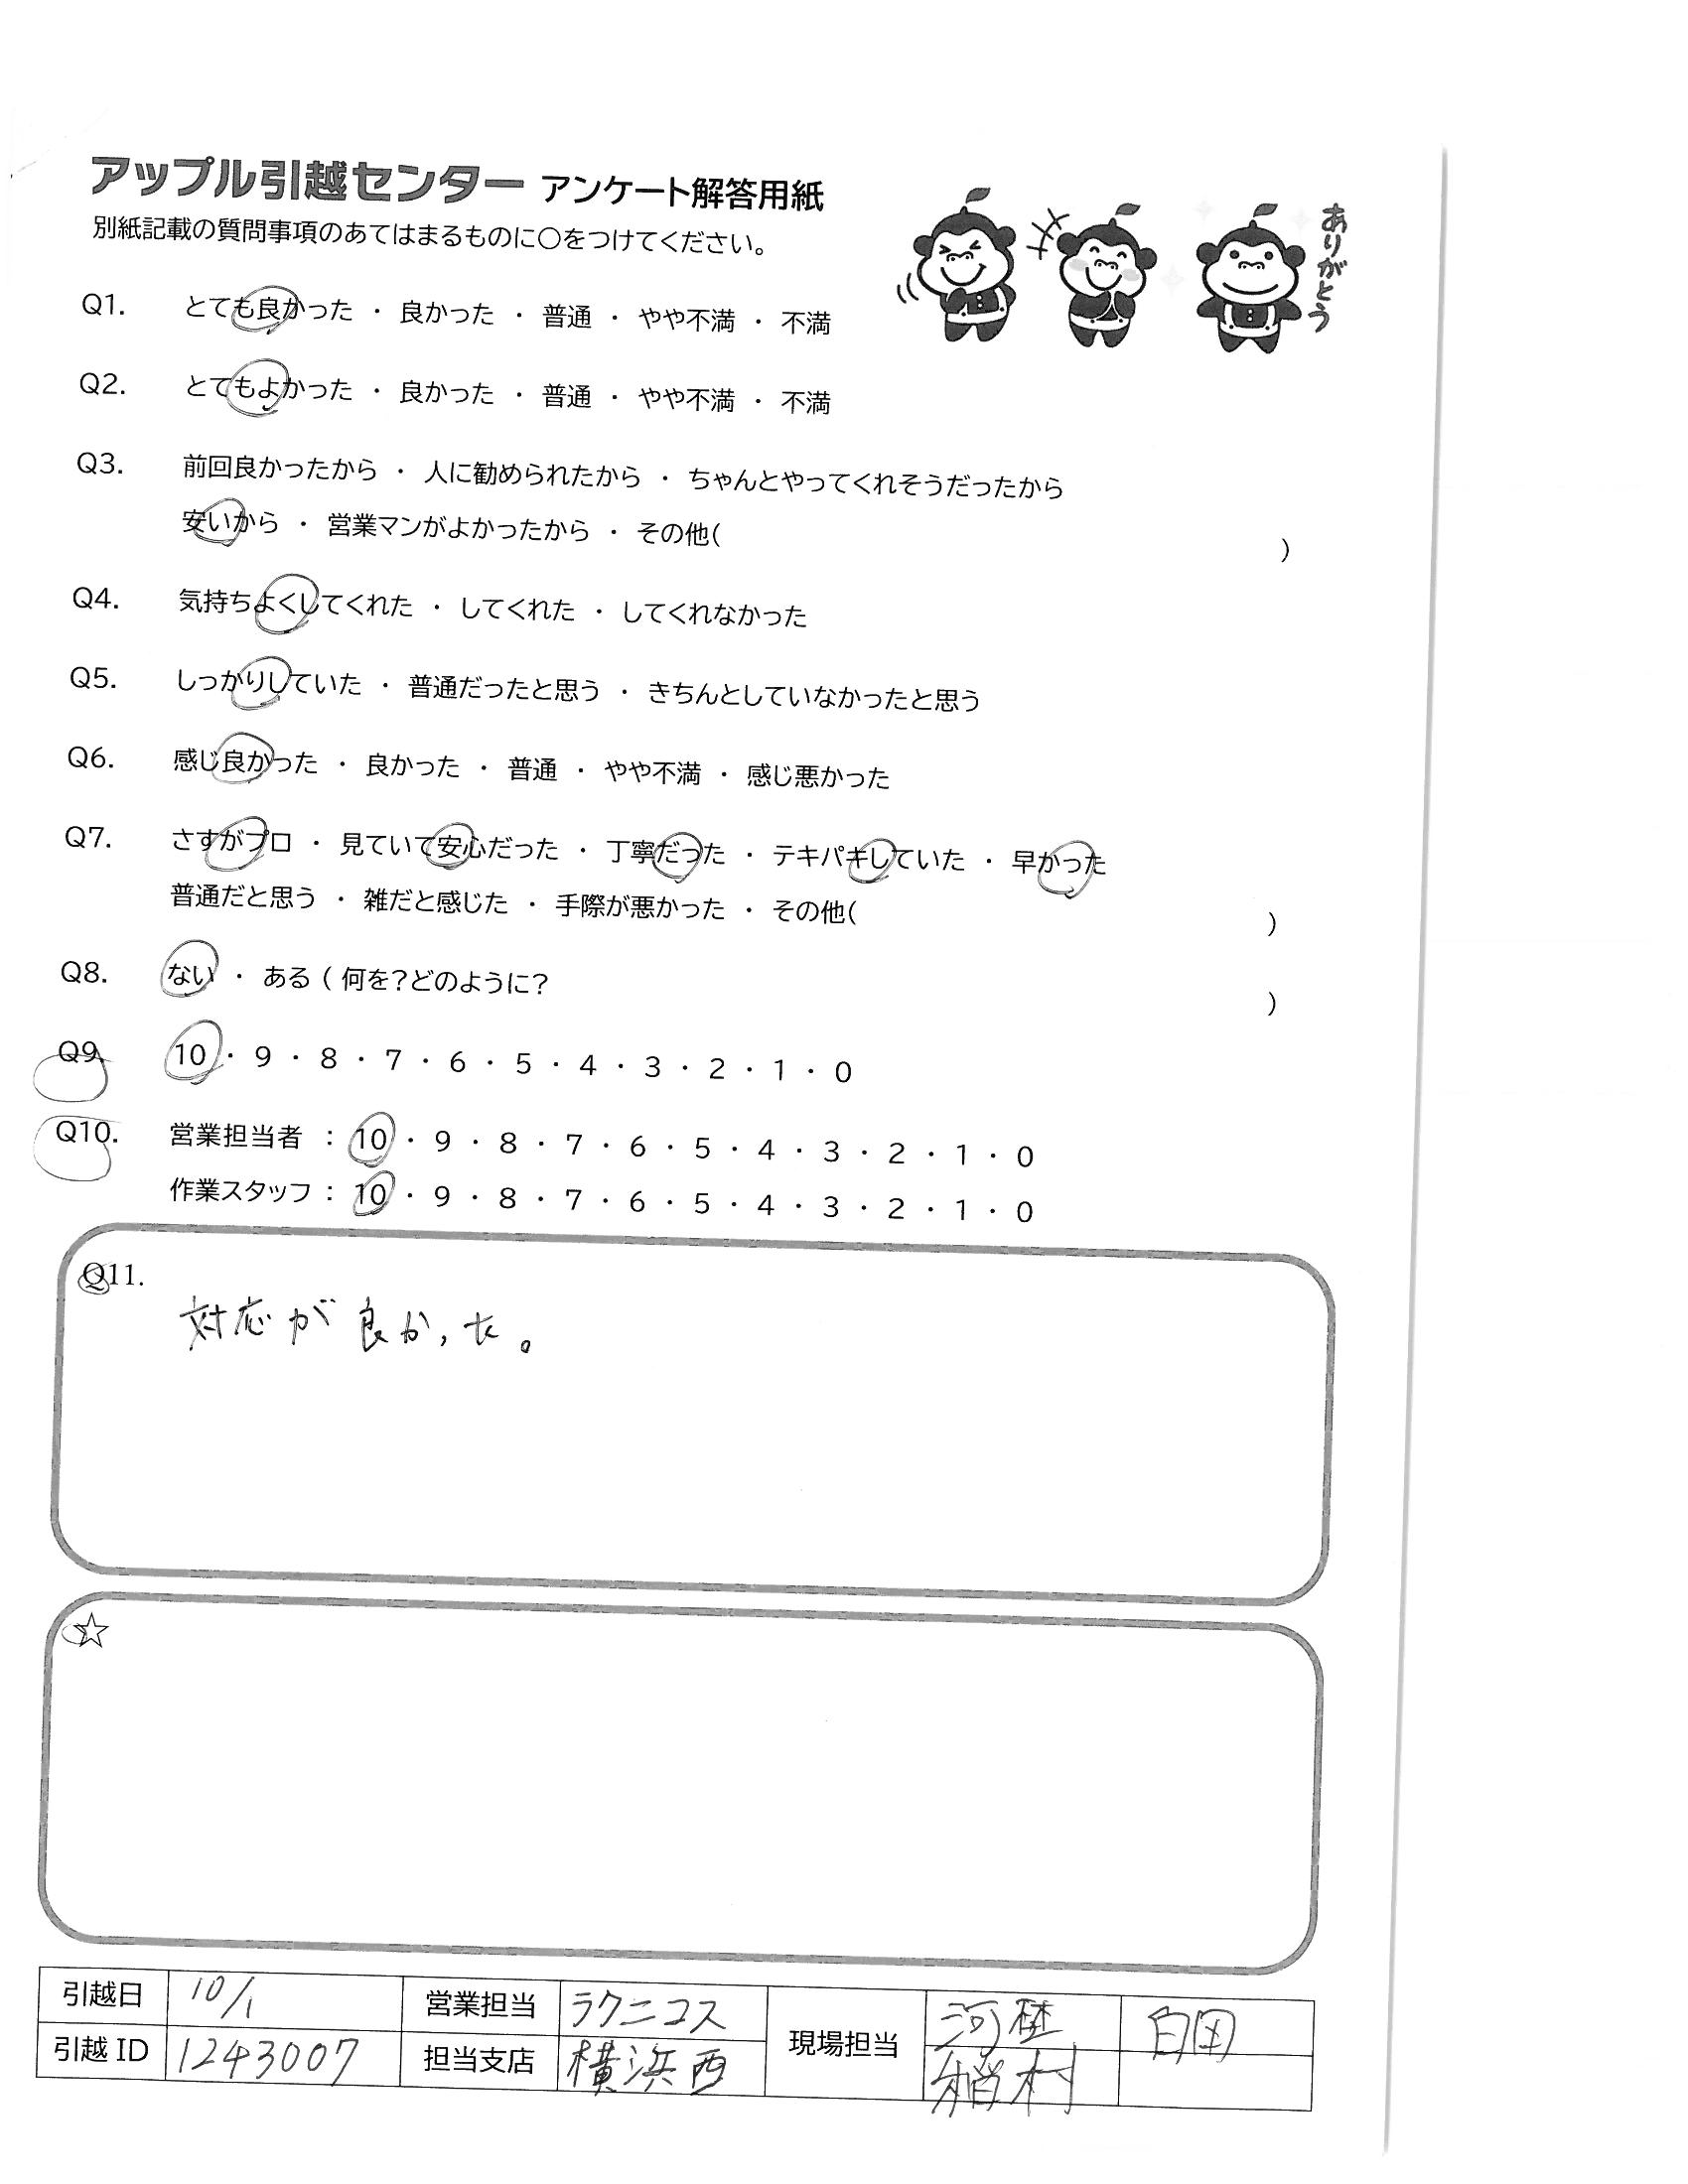 アップル引越センター アンケート解答用紙
別紙記載の質問事項のあてはまるものに○をつけてください。
ありがとう
Q1. とても良かった ・ 良かった ・ 普通 ・ やや不満 ・ 不満
Q2. とてもよかった ・ 良かった ・ 普通 ・ やや不満 ・ 不満
Q3. 前回良かったから ・ 人に勧められたから ・ ちゃんとやってくれそうだったから
安いから ・ 営業マンがよかったから ・ その他( )
Q4. 気持ちよくしてくれた ・ してくれた ・ してくれなかった
Q5. しっかりしていた ・ 普通だったと思う ・ きちんとしていなかったと思う
Q6. 感じ良かった ・ 良かった ・ 普通 ・ やや不満 ・ 感じ悪かった
Q7. さすがプロ ・ 見ていて安心だった ・ 丁寧だった ・ テキパキしていた ・ 早かった
普通だと思う ・ 雑だと感じた ・ 手際が悪かった ・ その他( )
Q8. ない ・ ある ( 何を?どのように? )
Q9. 10 ・ 9 ・ 8 ・ 7 ・ 6 ・ 5 ・ 4 ・ 3 ・ 2 ・ 1 ・ 0
Q10. 営業担当者 : 10 ・ 9 ・ 8 ・ 7 ・ 6 ・ 5 ・ 4 ・ 3 ・ 2 ・ 1 ・ 0
作業スタッフ : 10 ・ 9 ・ 8 ・ 7 ・ 6 ・ 5 ・ 4 ・ 3 ・ 2 ・ 1 ・ 0
Q11.
対応が良かった。
☆
引越日 10/1 営業担当 ラクニコス 現場担当 河埜 白田
引越 ID 1243007 担当支店 横浜西 稲村